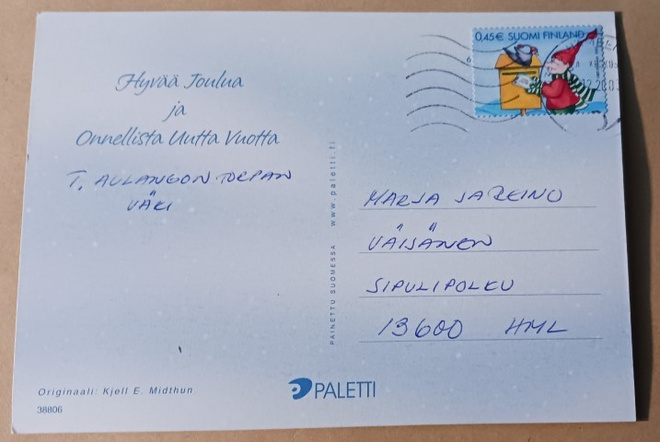 Hyvää Joulua
ja
Onnellista Uutta Vuotta
T. AULANGON TORPAN
VÄKI
0,45€ SUOMI FINLAND
MARJA JA REINO
VÄISÄNEN
SIPULIPOLKU
13600 HML
PAINETTU SUOMESSA www.paletti.fi
Originaali: Kjell E. Midthun
38806
PALETTI